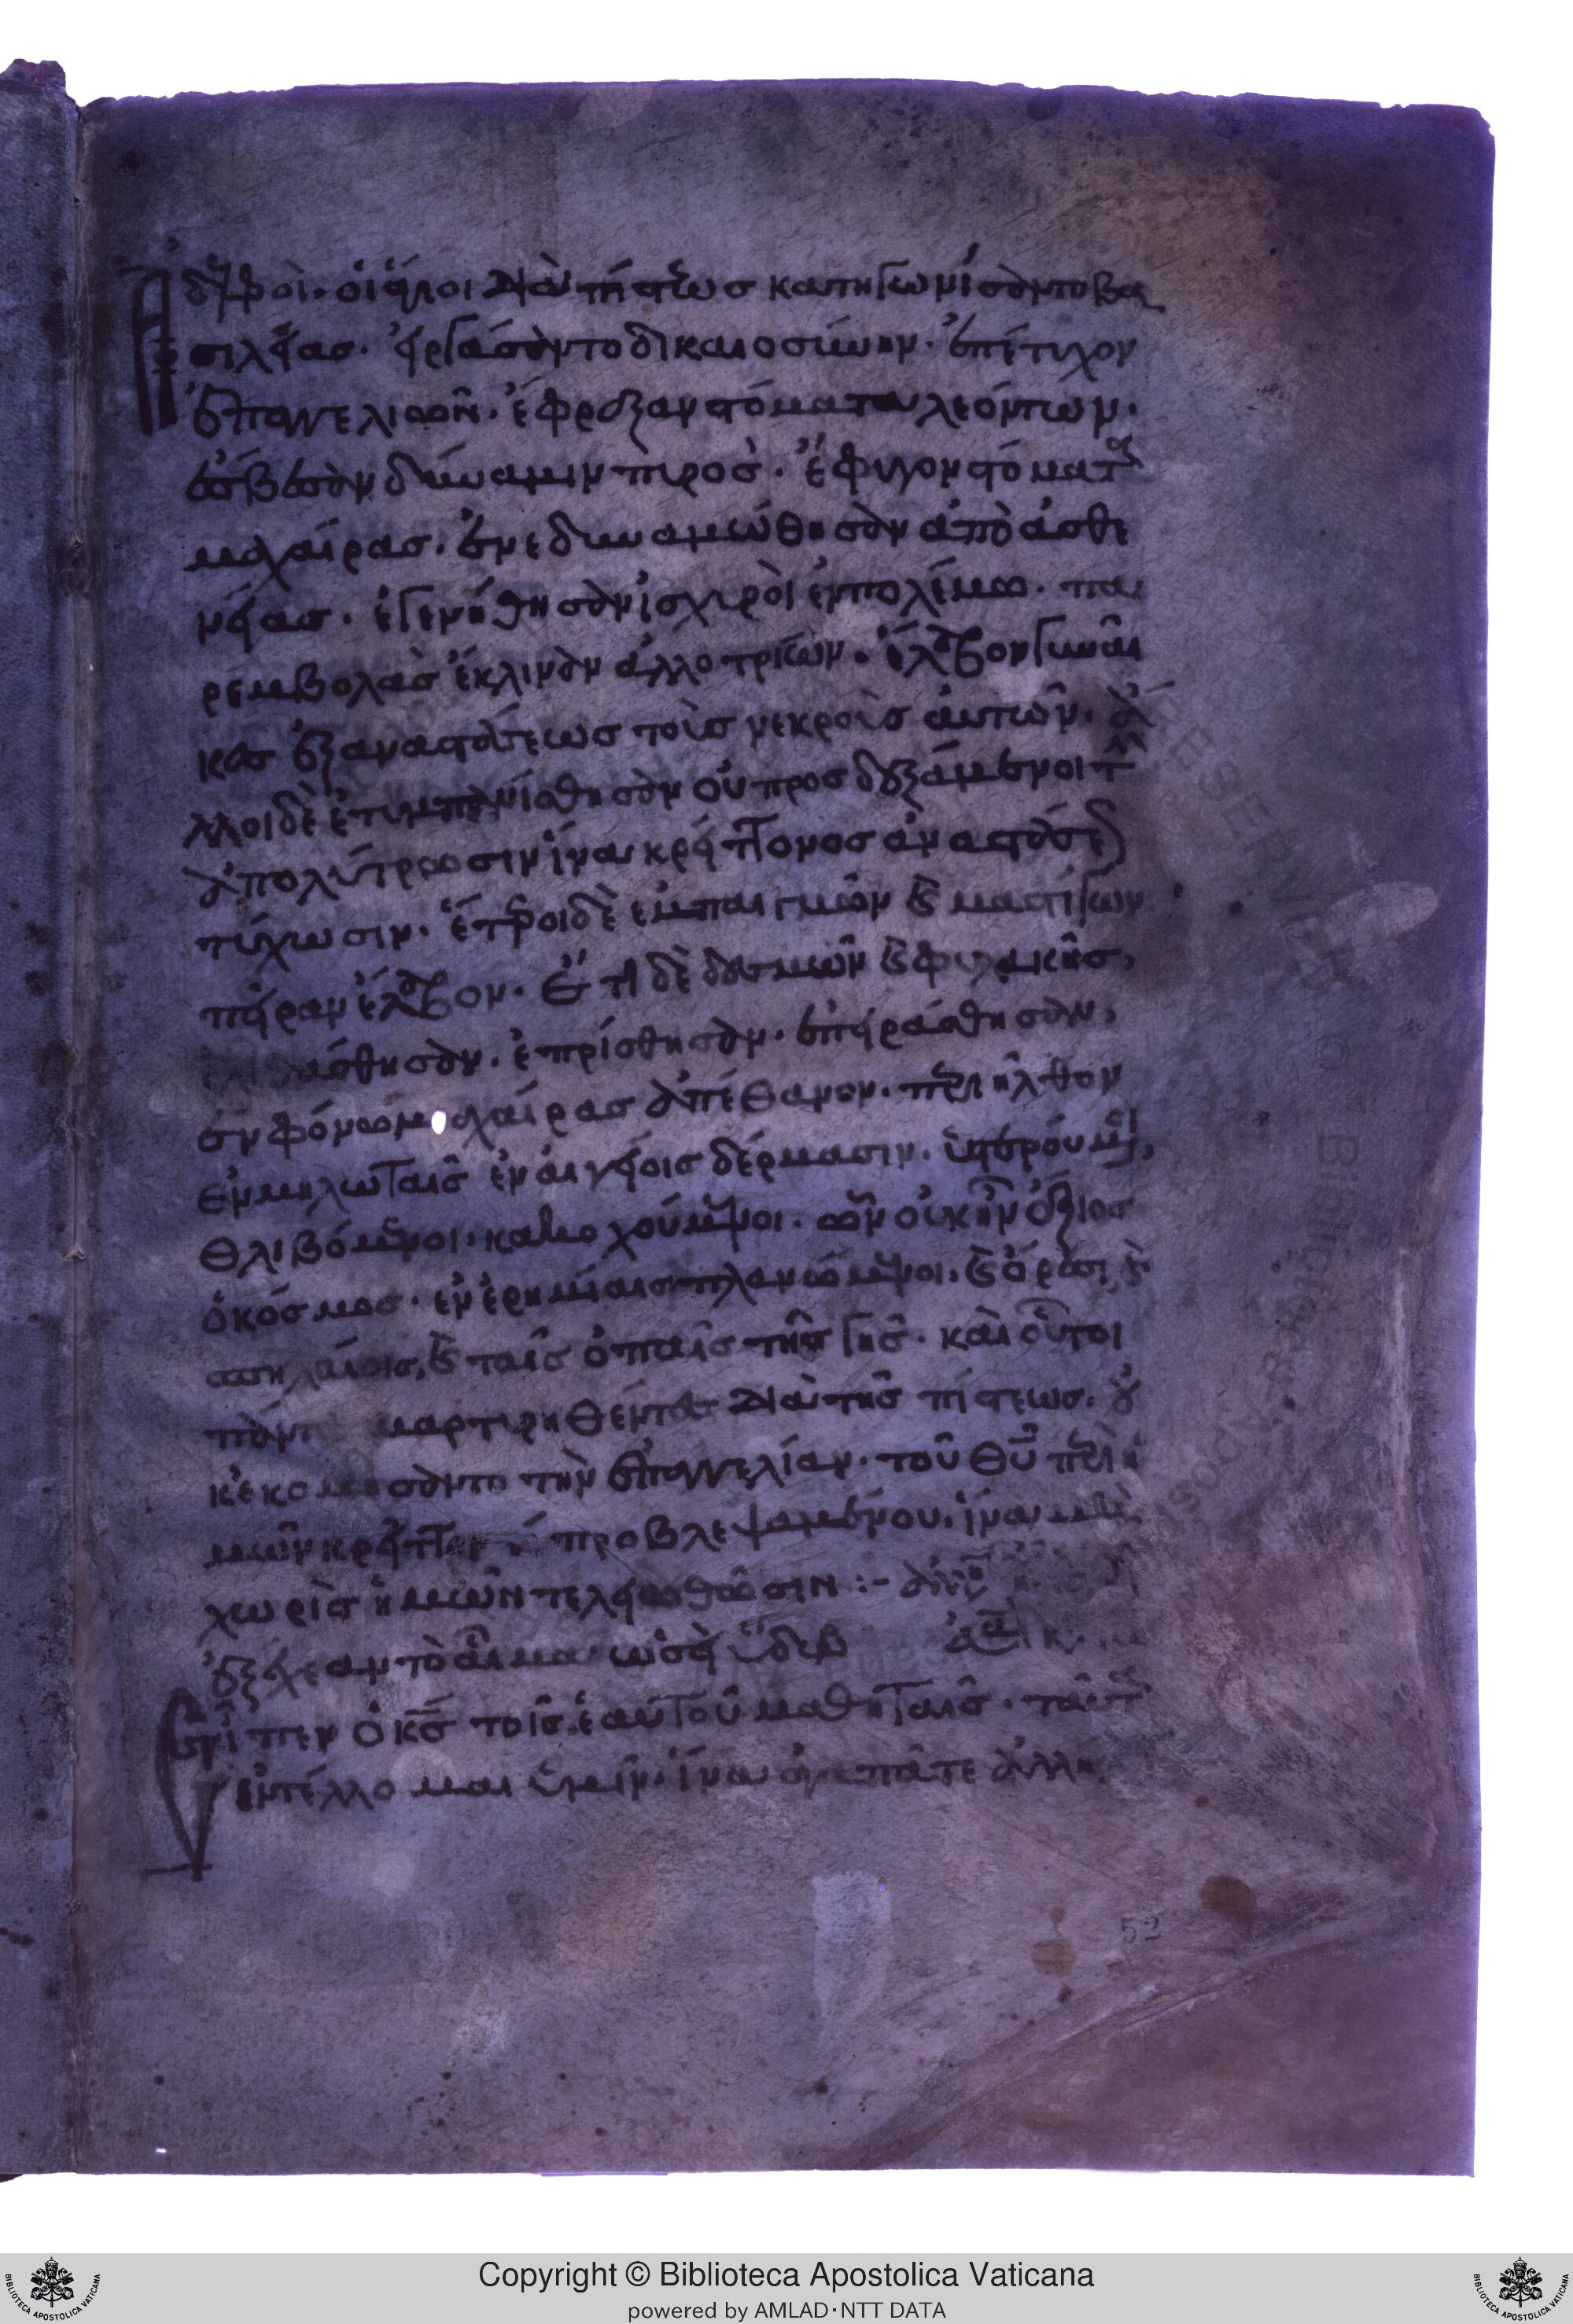 Ἀδελφοὶ· οἱ ἅγιοι διὰ πίστεως κατηγωνίσαντο βα
σιλείας· εἰργάσαντο δικαιοσύνην· ἐπέτυχον
ἐπαγγελιῶν· ἔφραξαν στόματα λεόντων·
ἔσβεσαν δύναμιν πυρὸς· ἔφυγον στόματα
μαχαίρας· ἐνεδυναμώθησαν ἀπὸ ἀσθε
νείας· ἐγενήθησαν ἰσχυροὶ ἐν πολέμω· πα
ρεμβολὰς ἔκλιναν ἀλλοτρίων· ἔλαβον γυναῖ
κες ἐξ αναστάσεως τοὺς νεκροὺς αὐτῶν· ἄ
λλοι δὲ ἐτυμπανίσθησαν οὐ προσδεξάμενοι τὴν
ἀπολύτρωσιν ἵνα κρείττονος ἀναστάσεως
τύχωσιν· ἕτεροι δὲ ἐμπαιγμῶν καὶ μαστίγων
πεῖραν ἔλαβον· ἔτι δὲ δεσμῶν καὶ φυλακῆς,
ἐλιθάσθησαν· ἐπρίσθησαν· ἐπειράσθησαν,
ἐν φόνω μαχαίρας ἀπέθανον· περιῆλθον
ἐν μηλωταῖς ἐν αἰγείοις δέρμασιν· ὑστερούμενοι,
θλιβόμενοι· κακοχούμενοι· ὧν οὐκ ἦν ἄξιος
ὁ κόσμος· ἐν ἐρημίαις πλανώμενοι· καὶ ὄρεσι καὶ
σπηλαίοις, καὶ ταῖς ὀπαῖς τῆς γῆς· καὶ οὗτοι
πάντες μαρτυρηθέντες διὰ τῆς πίστεως· οὐ
κ ἐκομίσαντο τὴν ἐπαγγελίαν· τοῦ θυ περὶ ἡ
μῶν κρεῖττόν τι προβλεψαμένου· ἵνα μὴ
χωρὶς ἡμῶν τελειωθῶσιν :-
ἐξέχεαν τὸ αἷμα ὡσεὶ ὕδωρ
Εἶπεν ὁ κς τοῖς ἑαυτοῦ μαθηταῖς· ταῦτα
ἐντέλλομαι ὑμῖν· ἵνα ἀγαπᾶτε ἀλλη
52
Copyright © Biblioteca Apostolica Vaticana
powered by AMLAD·NTT DATA